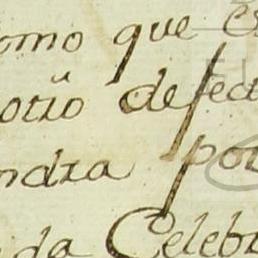 omo que e
otiõ defect
ndra por
da Celebr